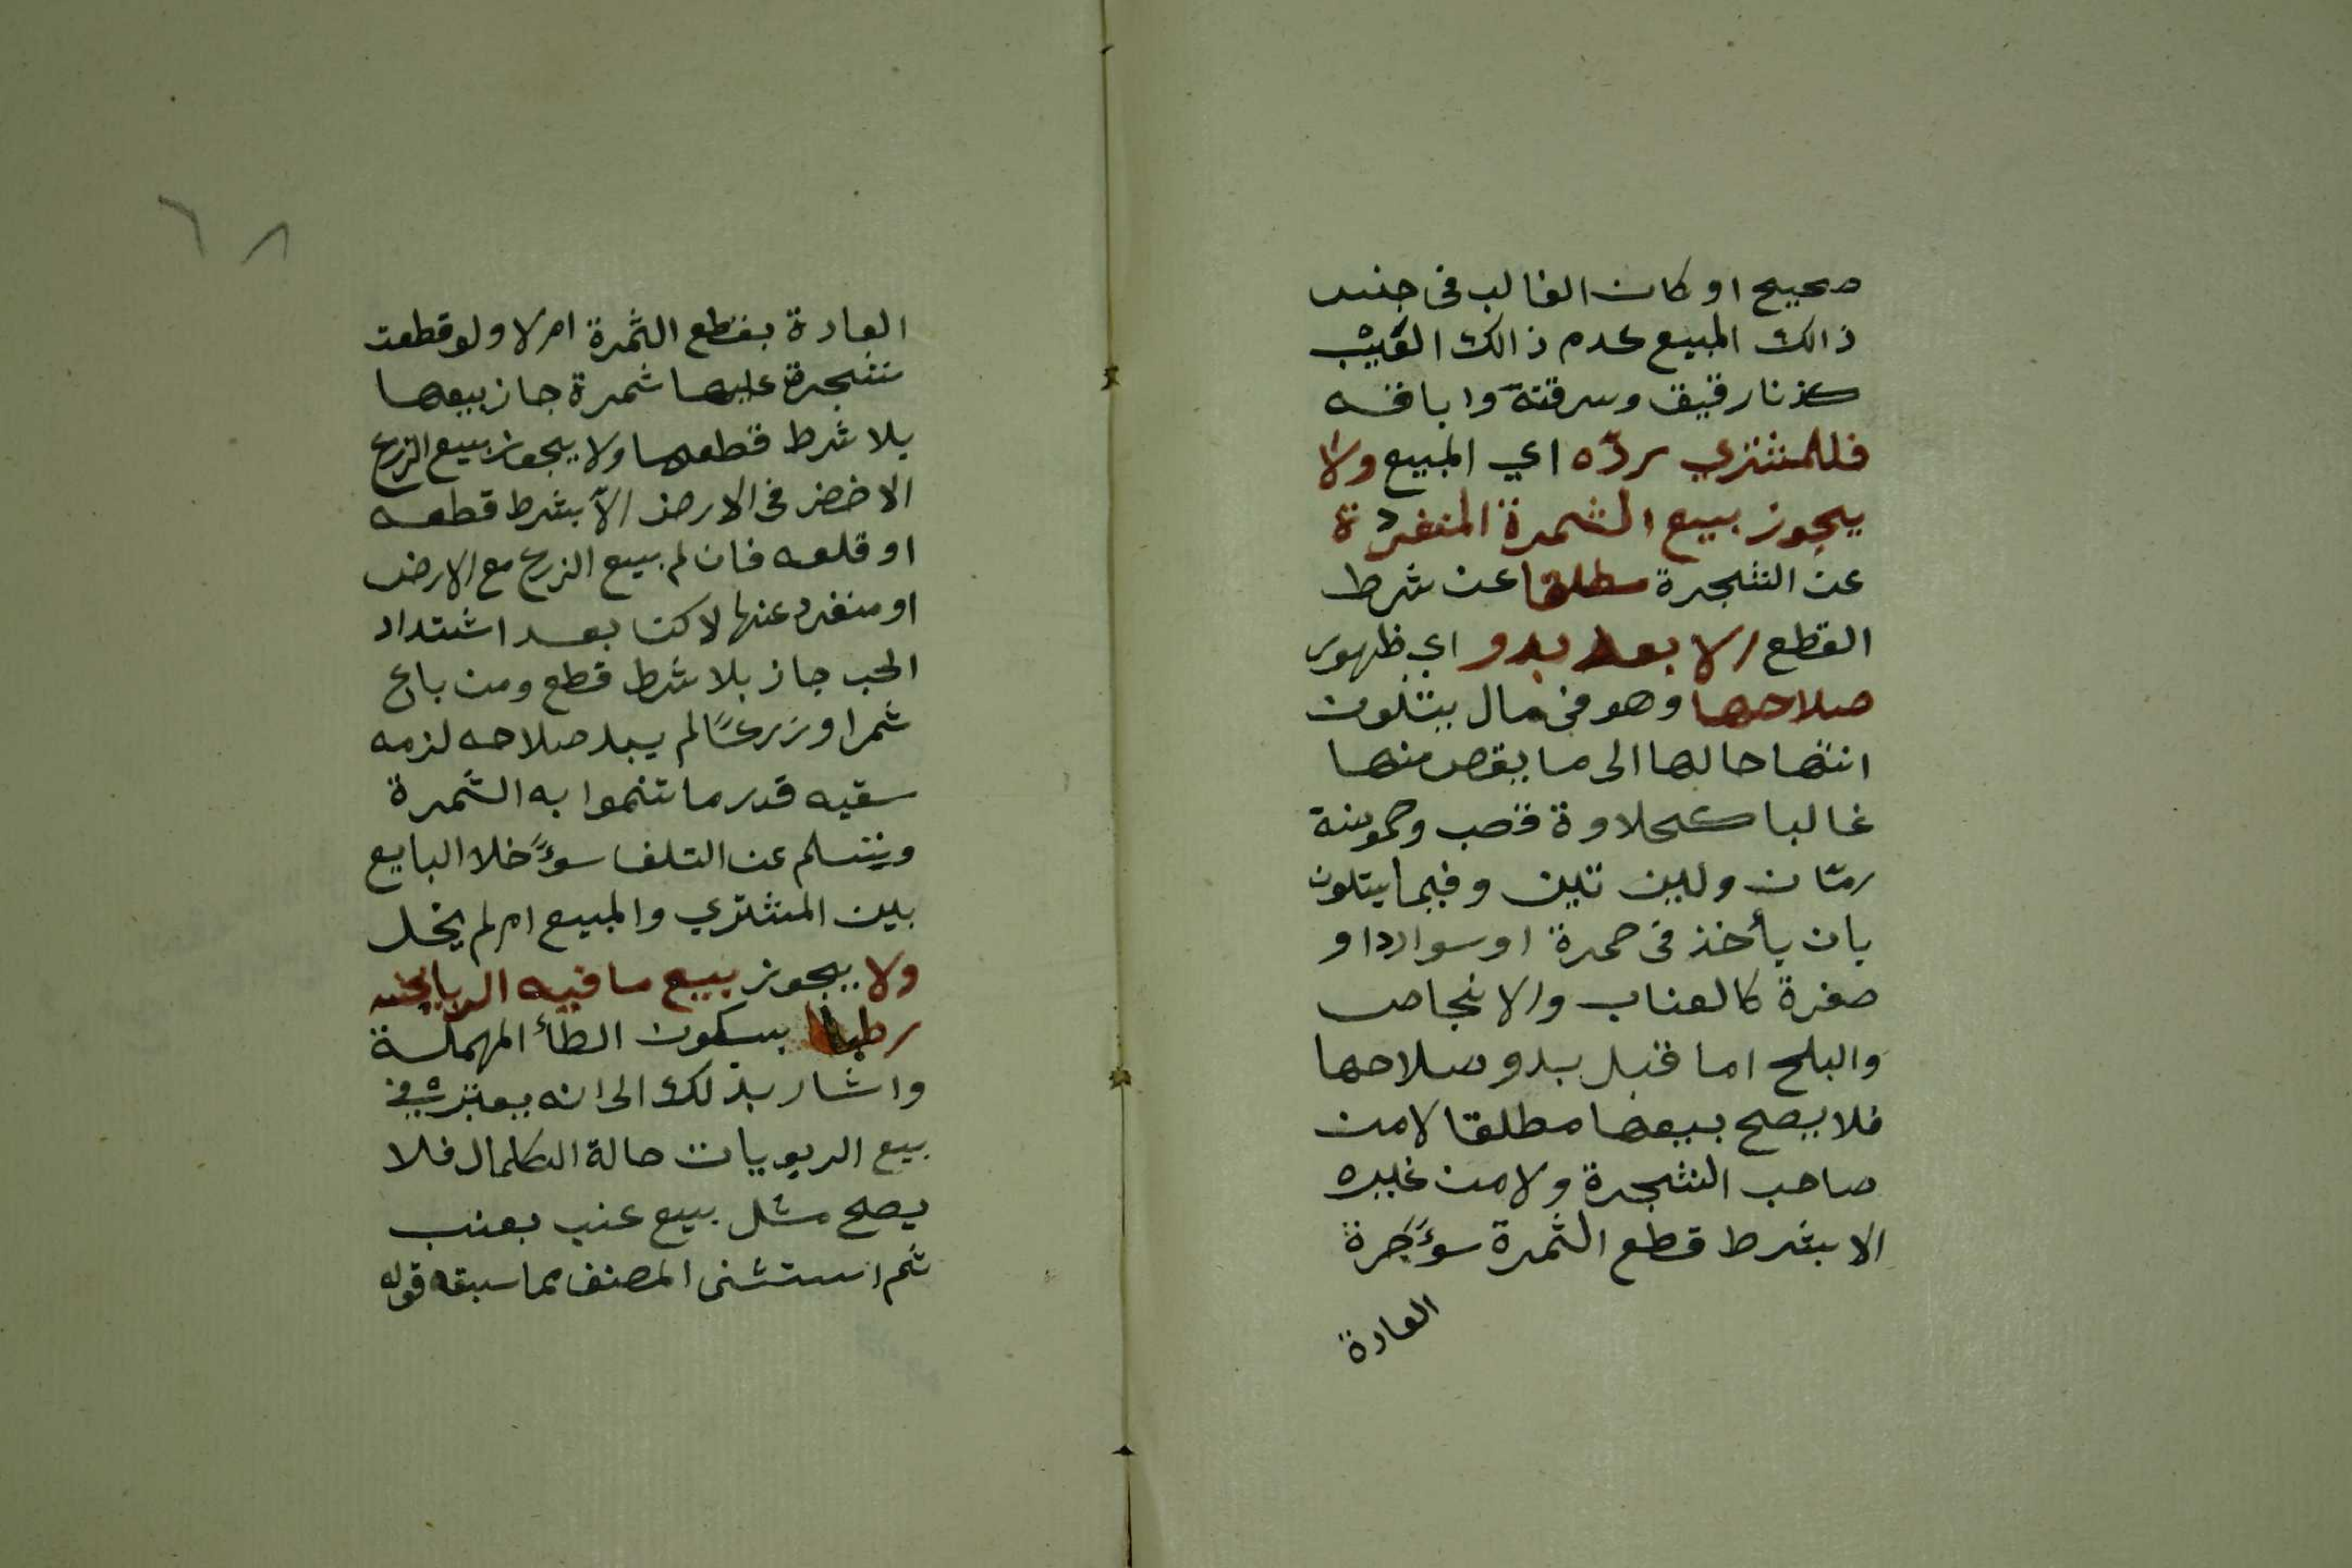 صحيح او كان الغالب في جنس
ذالك المبيع عدم ذالك العيب
كزنا رقيق وسرقته واباقه
فللمشتري ردّه اي المبيع ولا
يجوز بيع الثمرة المنفردة
عن الشجرة مطلقا عن شرط
القطع الا بعد بدو اي ظهور
صلاحها وهو في مال يتلون
انتها حالها الى ما يقص منها
غالبا كحلاوة قصب وحموضة
رمّان ولين تين وفيما يتلون
بان يأخذ في حمرة او سواردا و
صفرة كالعناب والانجاص
والبلح اما قبل بدو صلاحها
فلا يصح بيعها مطلقا لا من
صاحب الشجرة ولا من غيره
الا بشرط قطع الثمرة سوءً جرة
العادة
٦٨
العادة بقطع الثمرة ام لا ولو قطعت
شجرة عليها ثمرة جاز بيعها
بلا شرط قطعها ولا يجوز بيع الزرع
الاخضر في الارض الّا بشرط قطعه
او قلعه فان لم بيع الزرع مع الارض
او منفرد عنها لاكن بعد اشتداد
الحب جاز بلا شرط قطع ومن باع
ثمرا وزرعًا لم يبد صلاحه لزمه
سقيه قدر ما تنموا به الثمرة
ويتسلم عن التلف سوءً خلا البايع
بين المشتري والمبيع ام لم يخل
ولا يجوز بيع ما فيه الربا بجنسه
رطبا بسكون الطأ المهملة
واشار بذلك الى انه يعتبر في
بيع الربويات حالة الكلمال فلا
يصلح مثل بيع عنب بعنب
ثم استثنى المصنف مما سبقه قوله